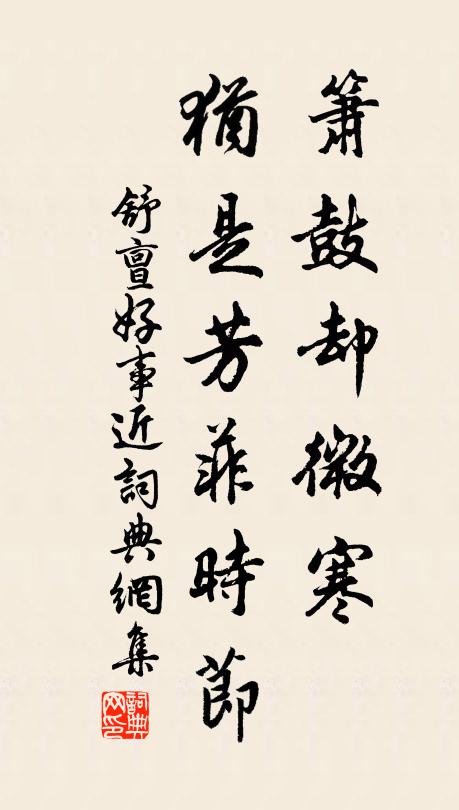 簫鼓却微寒
猶是芳菲時節
舒亶好事近詞典網集
詞典網印